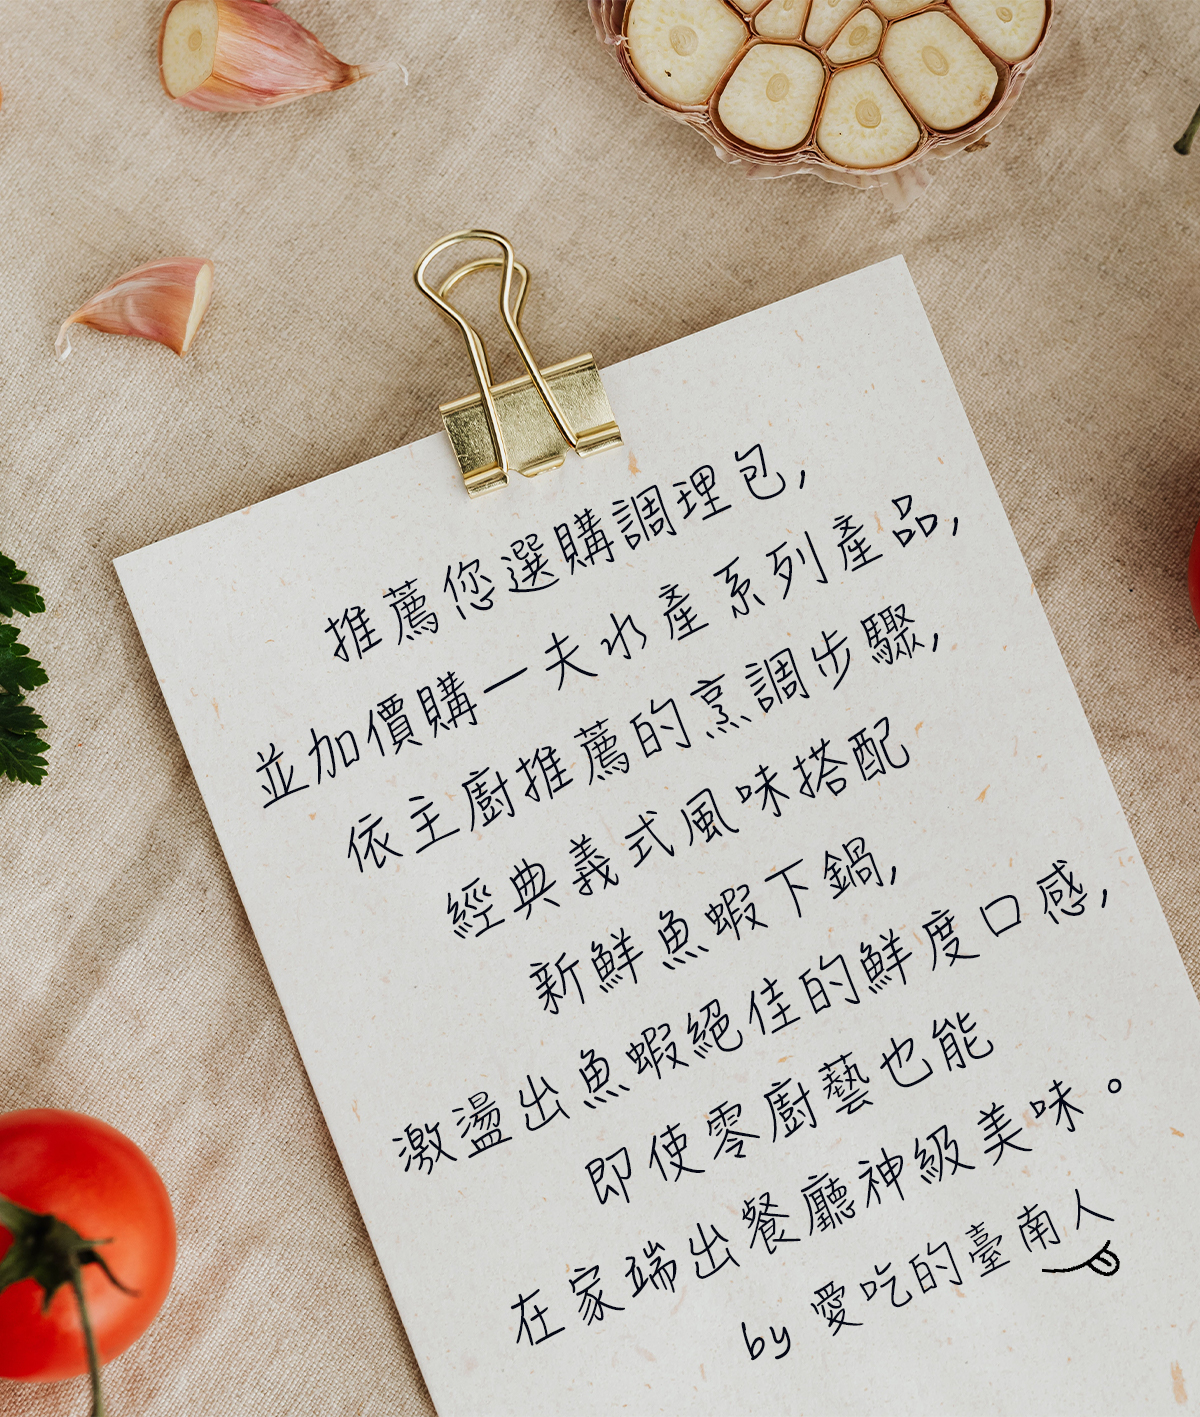 推薦您選購調理包,
並加價購一夫水產系列產品,
依主廚推薦的烹調步驟,
經典義式風味搭配
新鮮魚蝦下鍋,
激盪出魚蝦絕佳的鮮度口感,
即使零廚藝也能
在家端出餐廳神級美味。
by 愛吃的臺南人